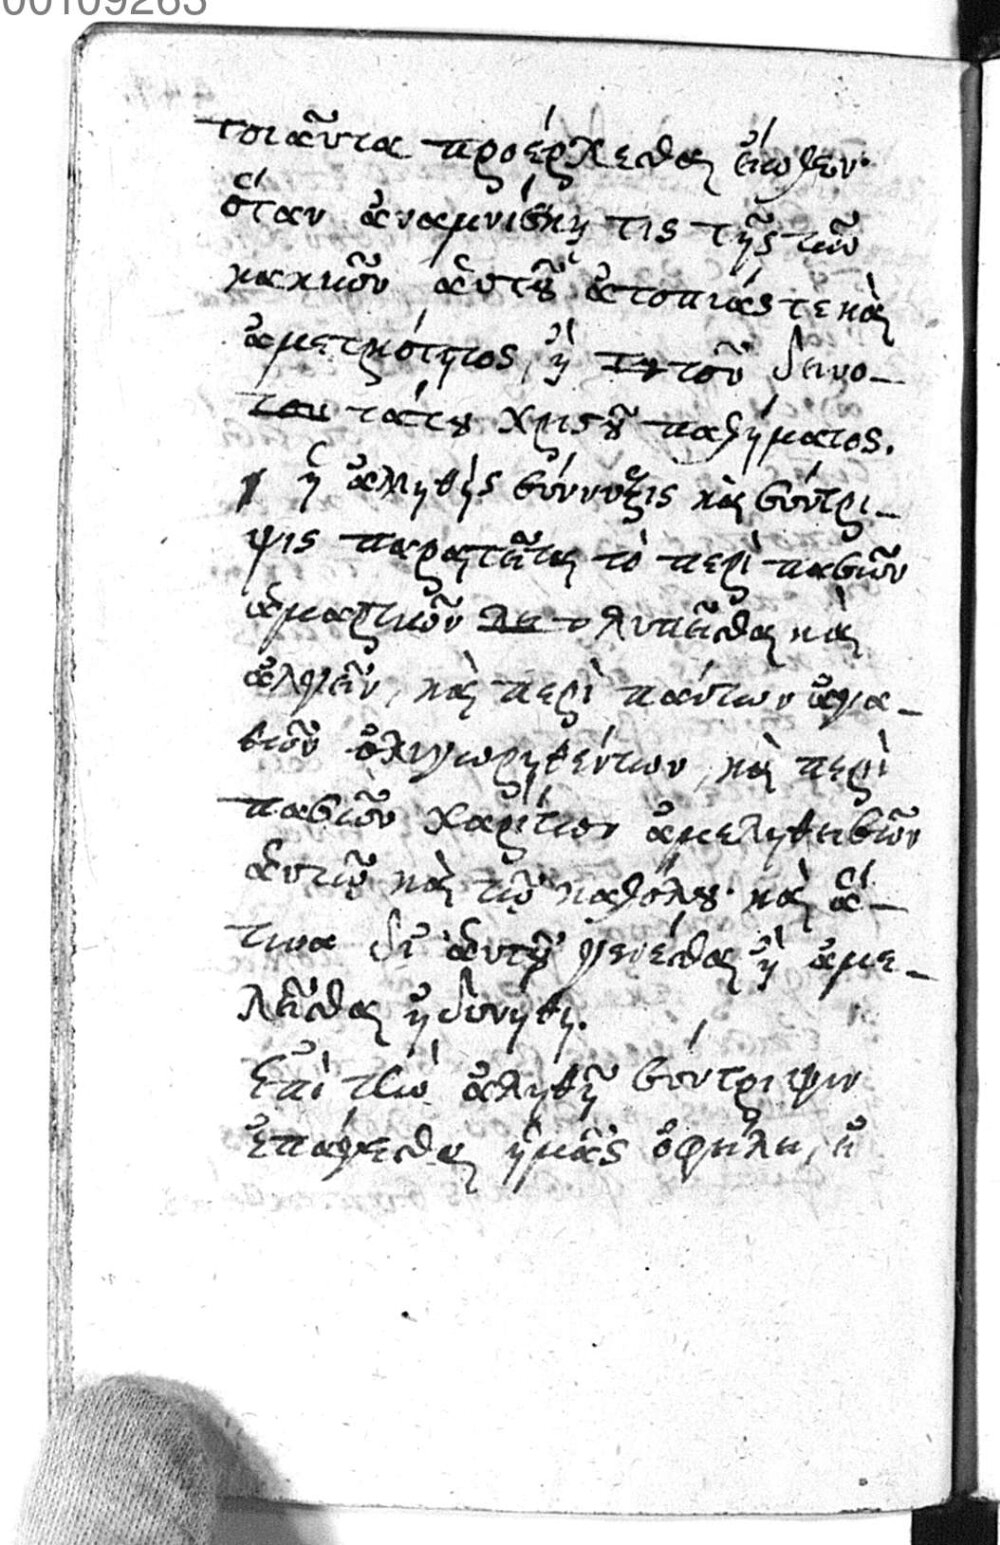 00109263
τοιαῦτα προέρχεσθαι εἴωθεν·
ὅταν ἀναμνήσκῃ τις τῆς τῶν
κακιῶν αὐτοῦ ἀτοπίας τε καὶ
ἀμετρότητος, ἢ τοῦ δεινο-
τάτου χριστοῦ παθήματος.
ἡ ἀληθὴς σύννυξις καὶ σύντρι-
ψις παρατεῖται τὸ περὶ πασῶν
ἁμαρτιῶν λυπεῖσθαι καὶ
ἀλγεῖν, καὶ περὶ πάντων ἀγα-
θῶν ὀλιγωρηθέντων, καὶ περὶ
πασῶν χαρίτων ἀμεληθεισῶν
αὐτῷ καὶ τῷ καθόλου· καὶ ἅ-
τινα δι' αὐτοῦ γενέσθαι ἢ ἀμε-
λεῖσθαι ἠδυνήθη.
Ἐπὶ τὴν ἀληθῆ σύντριψιν
ἐπάγεσθαι ἡμᾶς ὀφείλει, εἰ